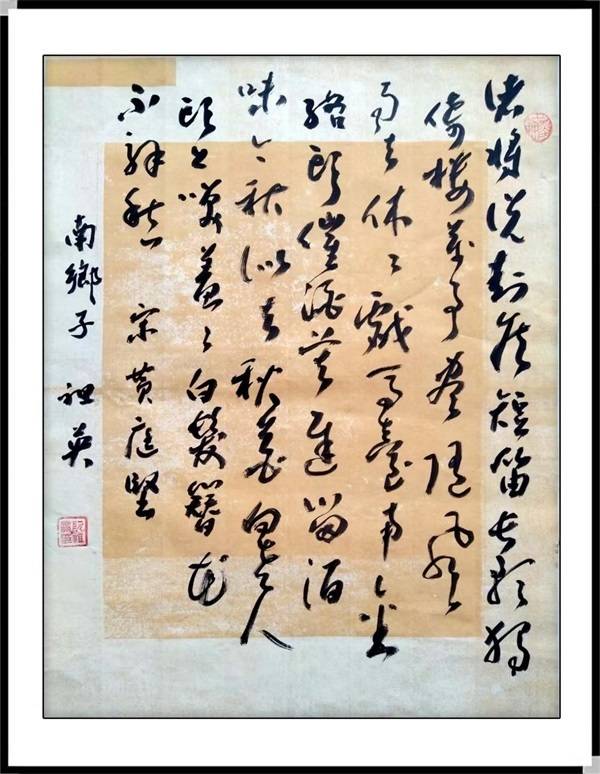 诸将说封侯短笛长歌独
倚楼萬事尽随风
雨去休々戲马臺南金
络头催酒莫遲留酒
味今秋似去秋花向老人
头上笑羞々白发簪花
不解愁 宋黄庭坚
南鄉子 祖英